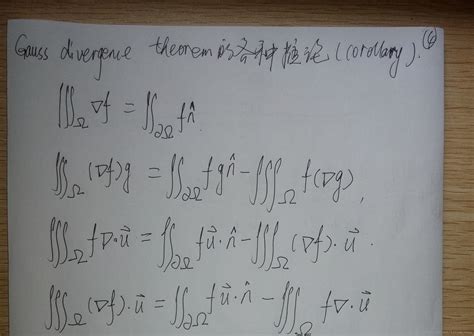 Gauss divergence theorem的各种推论(corollary). ⑥
∭_Ω ∇f = ∬_∂Ω f n̂
∭_Ω (∇f)g = ∬_∂Ω f g n̂ - ∭_Ω f(∇g),
∭_Ω f∇·u⃗ = ∬_∂Ω f u⃗·n̂ - ∭_Ω (∇f)·u⃗.
∭_Ω (∇f)·u⃗ = ∬_∂Ω f u⃗·n̂ - ∭_Ω f∇·u⃗